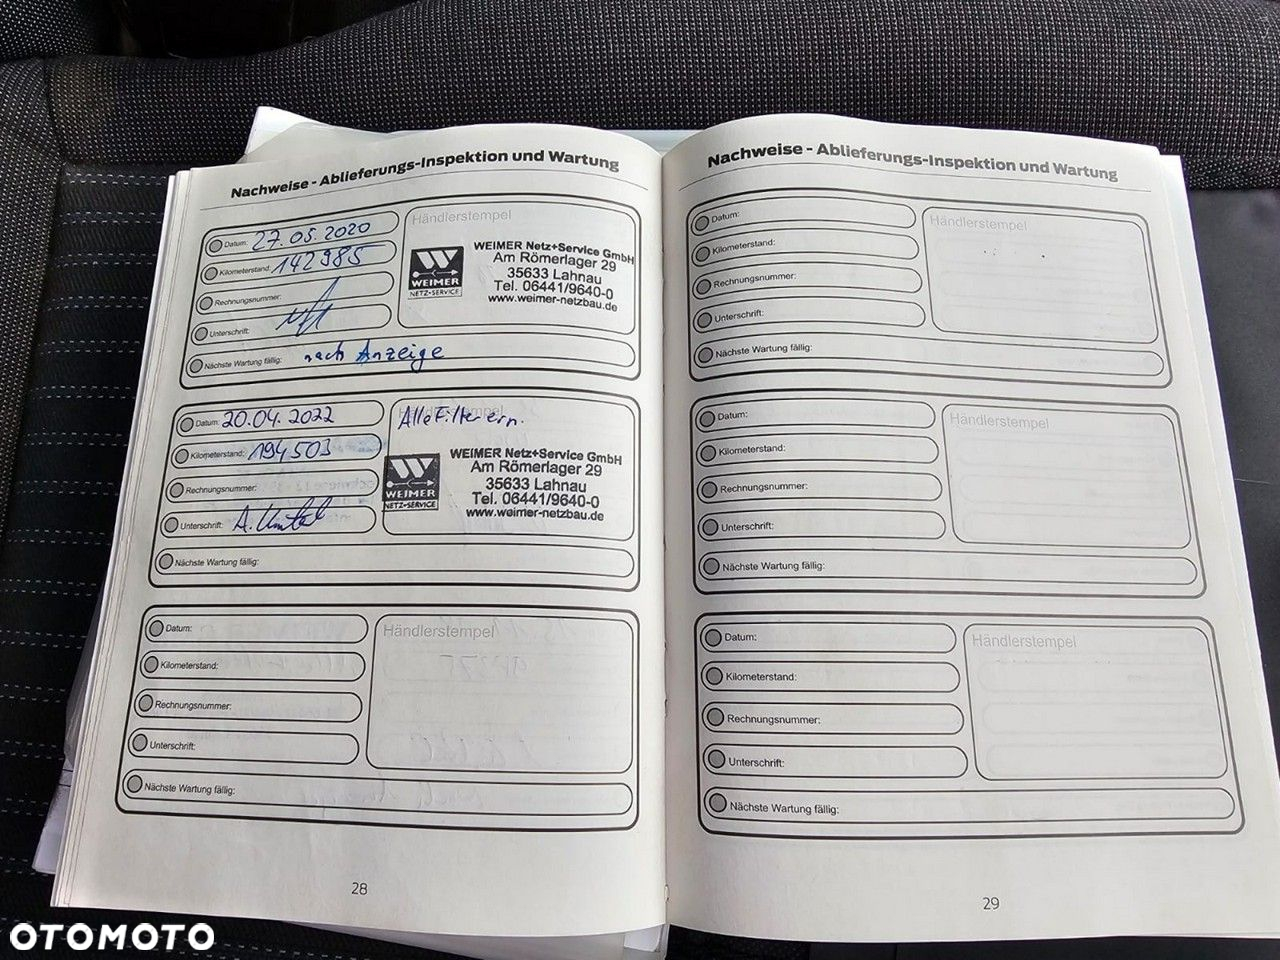 Nachweise - Ablieferungs-Inspektion und Wartung
Datum: 27.05.2020
Kilometerstand: 142985
Rechnungsnummer:
Unterschrift:
Nächste Wartung fällig: nach Anzeige
Händlerstempel
WEIMER
NETZ-SERVICE
WEIMER Netz+Service GmbH
Am Römerlager 29
35633 Lahnau
Tel. 06441/9640-0
www.weimer-netzbau.de
Datum: 20.04.2022
Kilometerstand: 194503
Rechnungsnummer:
Unterschrift:
Nächste Wartung fällig:
Händlerstempel
Alle Filter ern.
WEIMER
NETZ-SERVICE
WEIMER Netz+Service GmbH
Am Römerlager 29
35633 Lahnau
Tel. 06441/9640-0
www.weimer-netzbau.de
Datum:
Kilometerstand:
Rechnungsnummer:
Unterschrift:
Nächste Wartung fällig:
Händlerstempel
28
Nachweise - Ablieferungs-Inspektion und Wartung
Datum:
Kilometerstand:
Rechnungsnummer:
Unterschrift:
Nächste Wartung fällig:
Händlerstempel
Datum:
Kilometerstand:
Rechnungsnummer:
Unterschrift:
Nächste Wartung fällig:
Händlerstempel
Datum:
Kilometerstand:
Rechnungsnummer:
Unterschrift:
Nächste Wartung fällig:
Händlerstempel
29
OTOMOTO